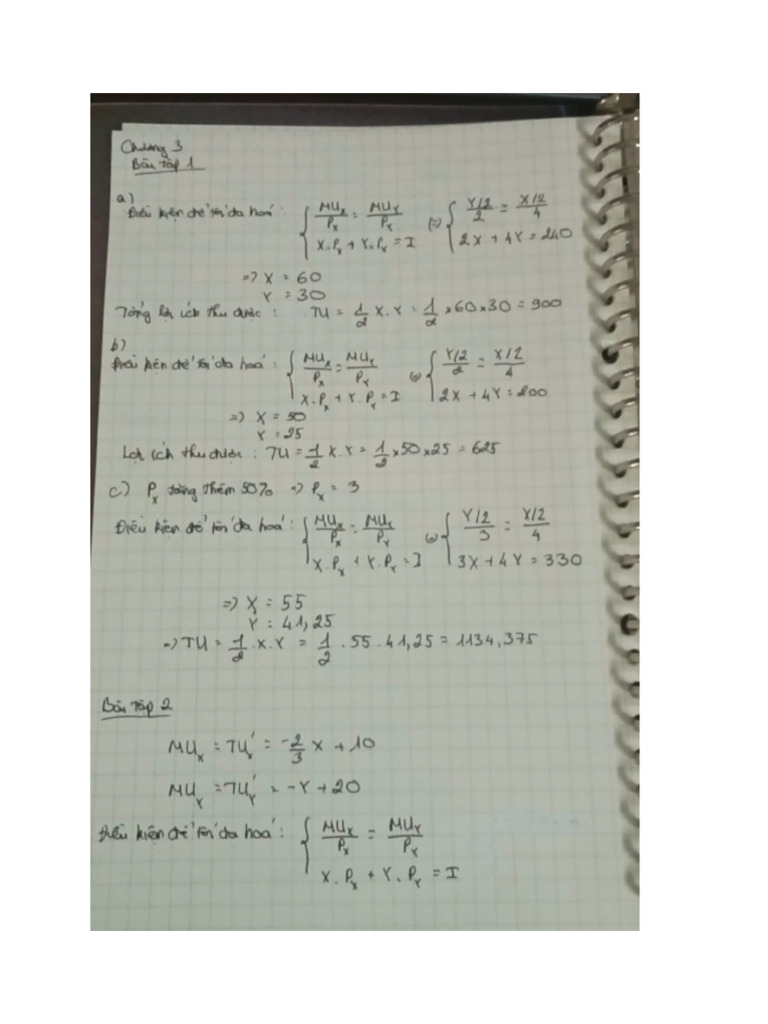 Chương 3
Bài Tập 1
a)
Điều kiện để tối đa hoá : { MUx/Px = MUY/PY (=) { Y/2/2 = X/2/4
X.Px + Y.PY = I 2X + 4Y = 240
=> X = 60
Y = 30
Tổng lợi ích thu được : TU = 1/2 X.Y = 1/2 x 60 x 30 = 900
b)
Điều kiện để tối đa hoá : { MUx/Px = MUY/PY (=) { Y/2/2 = X/2/4
X.Px + Y.PY = I 2X + 4Y = 200
=> X = 50
Y = 25
Lợi ích thu được : TU = 1/2 X.Y = 1/2 x 50 x 25 = 625
c) Px tăng thêm 50% => Px = 3
Điều kiện để tối đa hoá : { MUx/Px = MUY/PY (=) { Y/2/3 = X/2/4
X.Px + Y.PY = I 3X + 4Y = 330
=> X = 55
Y = 41,25
=> TU = 1/2 .X.Y = 1/2 . 55 . 41,25 = 1134,375
Bài Tập 2
MUx = TUx' = -2/3 X + 10
MUY = TUY' = -Y + 20
Điều kiện để tối đa hoá : { MUx/Px = MUY/PY
X.Px + Y.PY = I